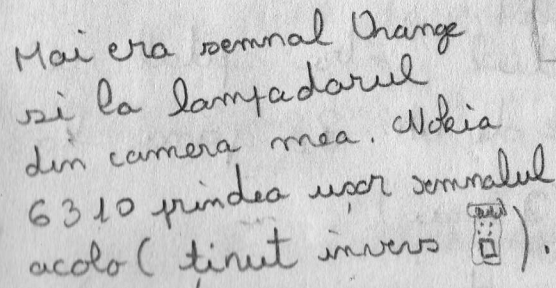 Mai era semnal Orange
si la lampadarul
din camera mea. Nokia
6310 prindea ușor semnalul
acolo ( ținut invers ).